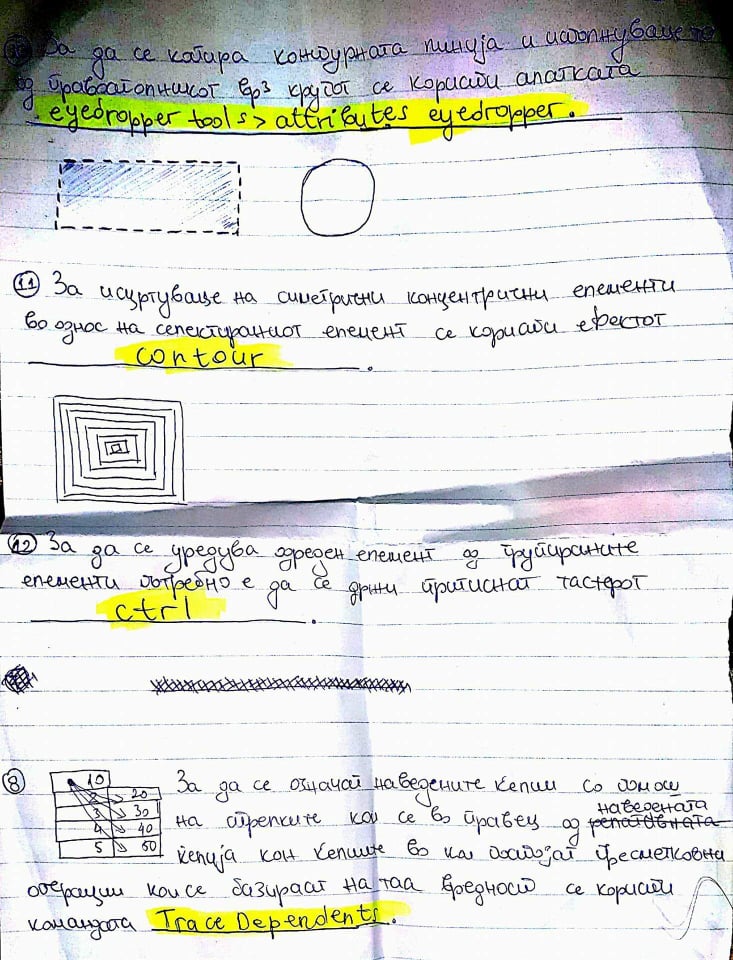 10 За да се копира контурната линија и исполнувањето
од правоаголникот врз кругот се користи алатката
eyedropper tools > attributes eyedropper.
11 За исцртување на симетрични концентрични елементи
во однос на селектираниот елемент се користи ефектот
contour.
12 За да се уредува одреден елемент од групираните
елементи потребно е да се држи притиснат тастерот
ctrl.
8 За да се означат наведените ќелии со помош
10
2 20
на стрелките кои се во правец од наведената
3 30
4 40
ќелија кон ќелиите во кои постојат пресметковни
5 50
операции кои се базираат на таа вредност се користи
командата Trace Dependents.